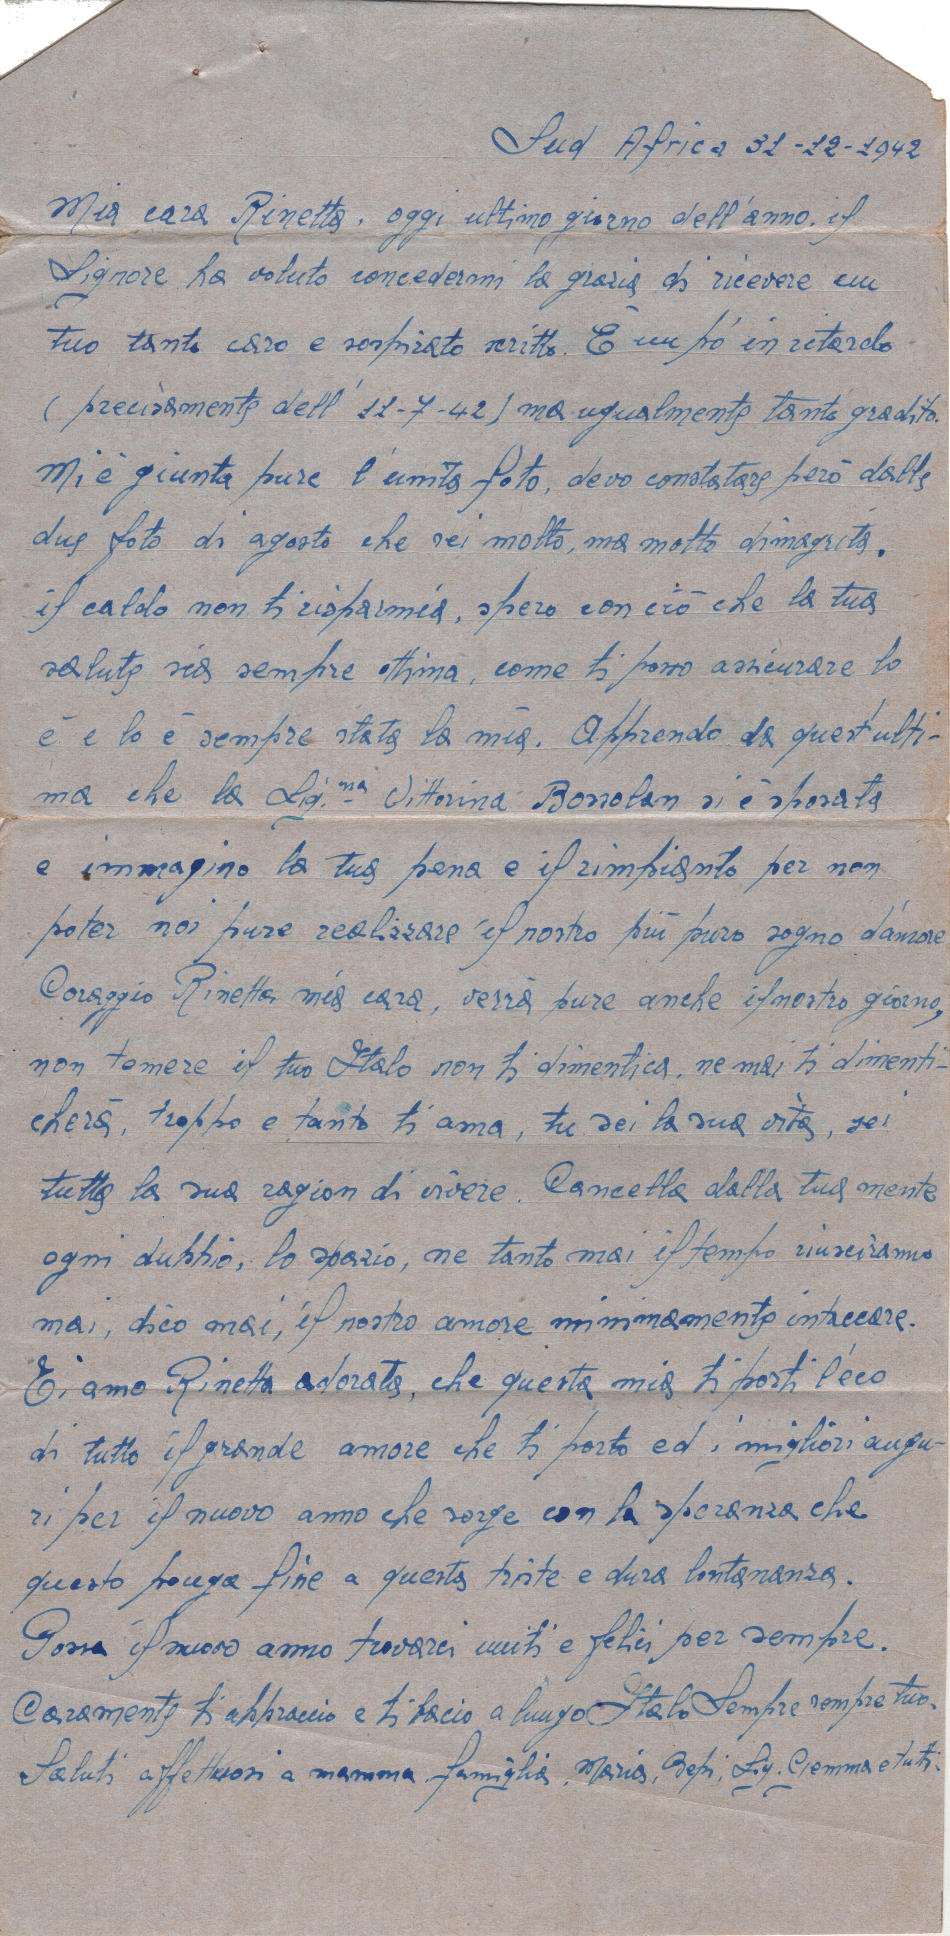 Sud Africa 31-12-1942
Mia cara Rinetta, oggi ultimo giorno dell'anno, il
Signore ha voluto concedermi la grazia di ricevere un
tuo tanto caro e sospirato scritto. È un pó in ritardo
(precisamente dell' 11-7-42) ma ugualmente tanto gradito.
Mi è giunta pure l'unita foto, devo constatare però dalle
due foto di agosto che sei molto, ma molto dimagrita.
il caldo non ti risparmia, spero con ciò che la tua
salute sia sempre ottima, come ti posso assicurare lo
è e lo è sempre stata la mia. Apprendo da quest'ulti-
ma che la Sig.na Vittorina Bossolan si è sposata
e immagino la tua pena e il rimpianto per non
poter noi pure realizzare il nostro più puro sogno d'amore
Coraggio Rinetta mia cara, verrà pure anche il nostro giorno,
non temere il tuo Italo non ti dimentica, ne mai ti dimenti-
cherà, troppo e tanto ti ama, tu sei la sua vita, sei
tutta la sua ragion di vivere. Cancella dalla tua mente
ogni dubbio, lo spazio, ne tanto mai il tempo riusciranno
mai, dico mai, il nostro amore minimamente intaccare.
Ti amo Rinetta adorata, che questa mia ti porti l'eco
di tutto il grande amore che ti porto ed i migliori augu-
ri per il nuovo anno che sorge con la speranza che
questo ponga fine a questa triste e dura lontananza.
Possa il nuovo anno trovarci uniti e felici per sempre.
Caramente ti abbraccio e ti bacio a lungo Italo Sempre sempre tuo.
Saluti affettuosi a mamma, famiglia, Maria, Bepi, Sig. Gemma e tutti.